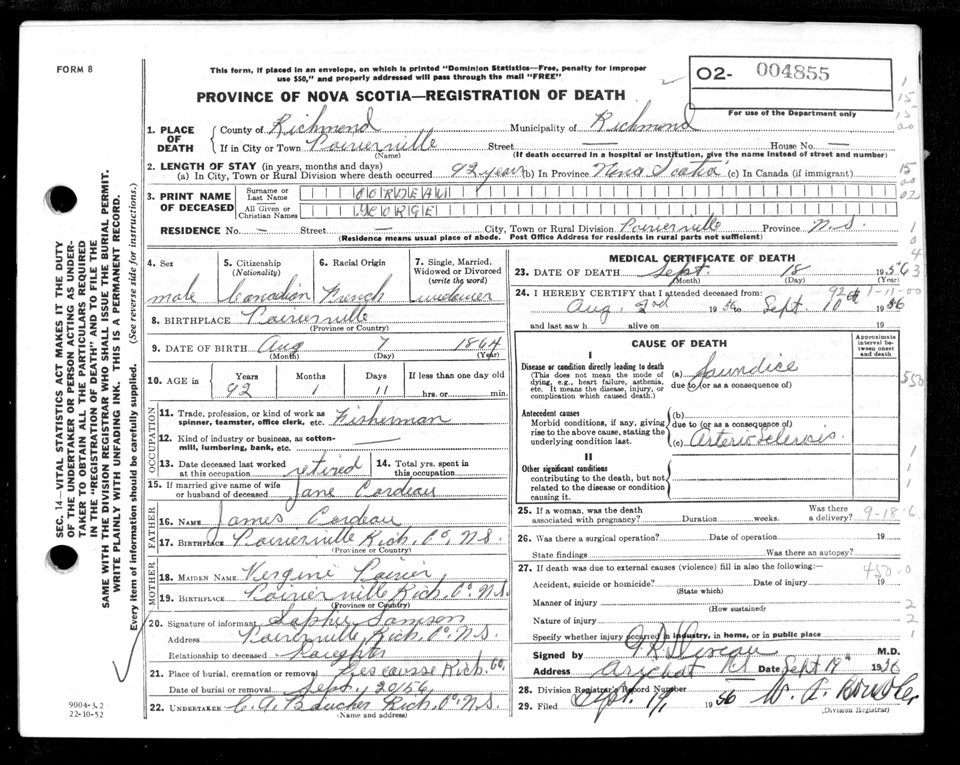 FORM 8
This form, if placed in an envelope, on which is printed "Dominion Statistics—Free, penalty for improper
use $50," and properly addressed will pass through the mail "FREE"
O2- 004855
For use of the Department only
PROVINCE OF NOVA SCOTIA—REGISTRATION OF DEATH
1. PLACE OF DEATH County of Richmond Municipality of Richmond
If in City or Town Poirierville Street — House No. —
(Name) (If death occurred in a hospital or institution, give the name instead of street and number)
2. LENGTH OF STAY (in years, months and days)
(a) In City, Town or Rural Division where death occurred 92 years (b) In Province Nova Scotia (c) In Canada (if immigrant)
3. PRINT NAME OF DECEASED Surname or Last Name CORDEAU
All Given or Christian Names GEORGE
RESIDENCE No. — Street — City, Town or Rural Division Poirierville Province N.S.
(Residence means usual place of abode. Post Office Address for residents in rural parts not sufficient)
4. Sex male
5. Citizenship (Nationality) Canadian
6. Racial Origin French
7. Single, Married, Widowed or Divorced (write the word) widower
8. BIRTHPLACE Poirierville
(Province or Country)
9. DATE OF BIRTH Aug 7 1864
(Month) (Day) (Year)
10. AGE in Years 92 Months 1 Days 11 If less than one day old
hrs. or min.
OCCUPATION
11. Trade, profession, or kind of work as
spinner, teamster, office clerk, etc. Fisherman
12. Kind of industry or business, as cotton-
mill, lumbering, bank, etc. —
13. Date deceased last worked
at this occupation retired
14. Total yrs. spent in
this occupation
15. If married give name of wife
or husband of deceased Jane Cordeau
FATHER
16. NAME James Cordeau
17. BIRTHPLACE Poirierville Rich. Co. N.S.
(Province or Country)
MOTHER
18. MAIDEN NAME Vergine Poirier
19. BIRTHPLACE Poirierville Rich. Co. N.S.
(Province or Country)
20. Signature of informant Sophie Samson
Address Poirierville, Rich. Co. N.S.
Relationship to deceased Daughter
21. Place of burial, cremation or removal Descousse Rich. Co.
Date of burial or removal Sept. 20/56
22. UNDERTAKER C. A. Boucher Rich. Co. N.S.
(Name and address)
MEDICAL CERTIFICATE OF DEATH
23. DATE OF DEATH Sept. 18 1956
(Month) (Day) (Year)
24. I HEREBY CERTIFY that I attended deceased from:
Aug. 2nd 1956 to Sept. 10th 1956
and last saw h alive on 19
CAUSE OF DEATH
Approximate interval between onset and death
I
Disease or condition directly leading to death
(This does not mean the mode of
dying, e.g., heart failure, asthenia,
etc. It means the disease, injury, or
complication which caused death.)
(a) Jaundice
due to (or as a consequence of)
Antecedent causes
Morbid conditions, if any, giving
rise to the above cause, stating the
underlying condition last.
(b)
due to (or as a consequence of)
(c) Arteriosclerosis.
II
Other significant conditions
contributing to the death, but not
related to the disease or condition
causing it.
25. If a woman, was the death
associated with pregnancy? Duration weeks. Was there a delivery?
9-18-6
26. Was there a surgical operation? Date of operation 19
State findings Was there an autopsy?
27. If death was due to external causes (violence) fill in also the following:—
450.0
Accident, suicide or homicide? Date of injury 19
(State which)
Manner of injury
(How sustained)
Nature of injury
Specify whether injury occurred in industry, in home, or in public place
Signed by M.D.
Address Arichat N.S. Date Sept 19th 1956
28. Division Registrar's Record Number
29. Filed Sept. 19/ 1956
(Division Registrar)
9004-3.2
22-10-52
SEC. 14—VITAL STATISTICS ACT MAKES IT THE DUTY
OF THE UNDERTAKER OR PERSON ACTING AS UNDER-
TAKER TO OBTAIN ALL THE PARTICULARS REQUIRED
IN THE "REGISTRATION OF DEATH" AND TO FILE THE
SAME WITH THE DIVISION REGISTRAR WHO SHALL ISSUE THE BURIAL PERMIT.
WRITE PLAINLY WITH UNFADING INK. THIS IS A PERMANENT RECORD.
Every item of information should be carefully supplied. (See reverse side for instructions.)